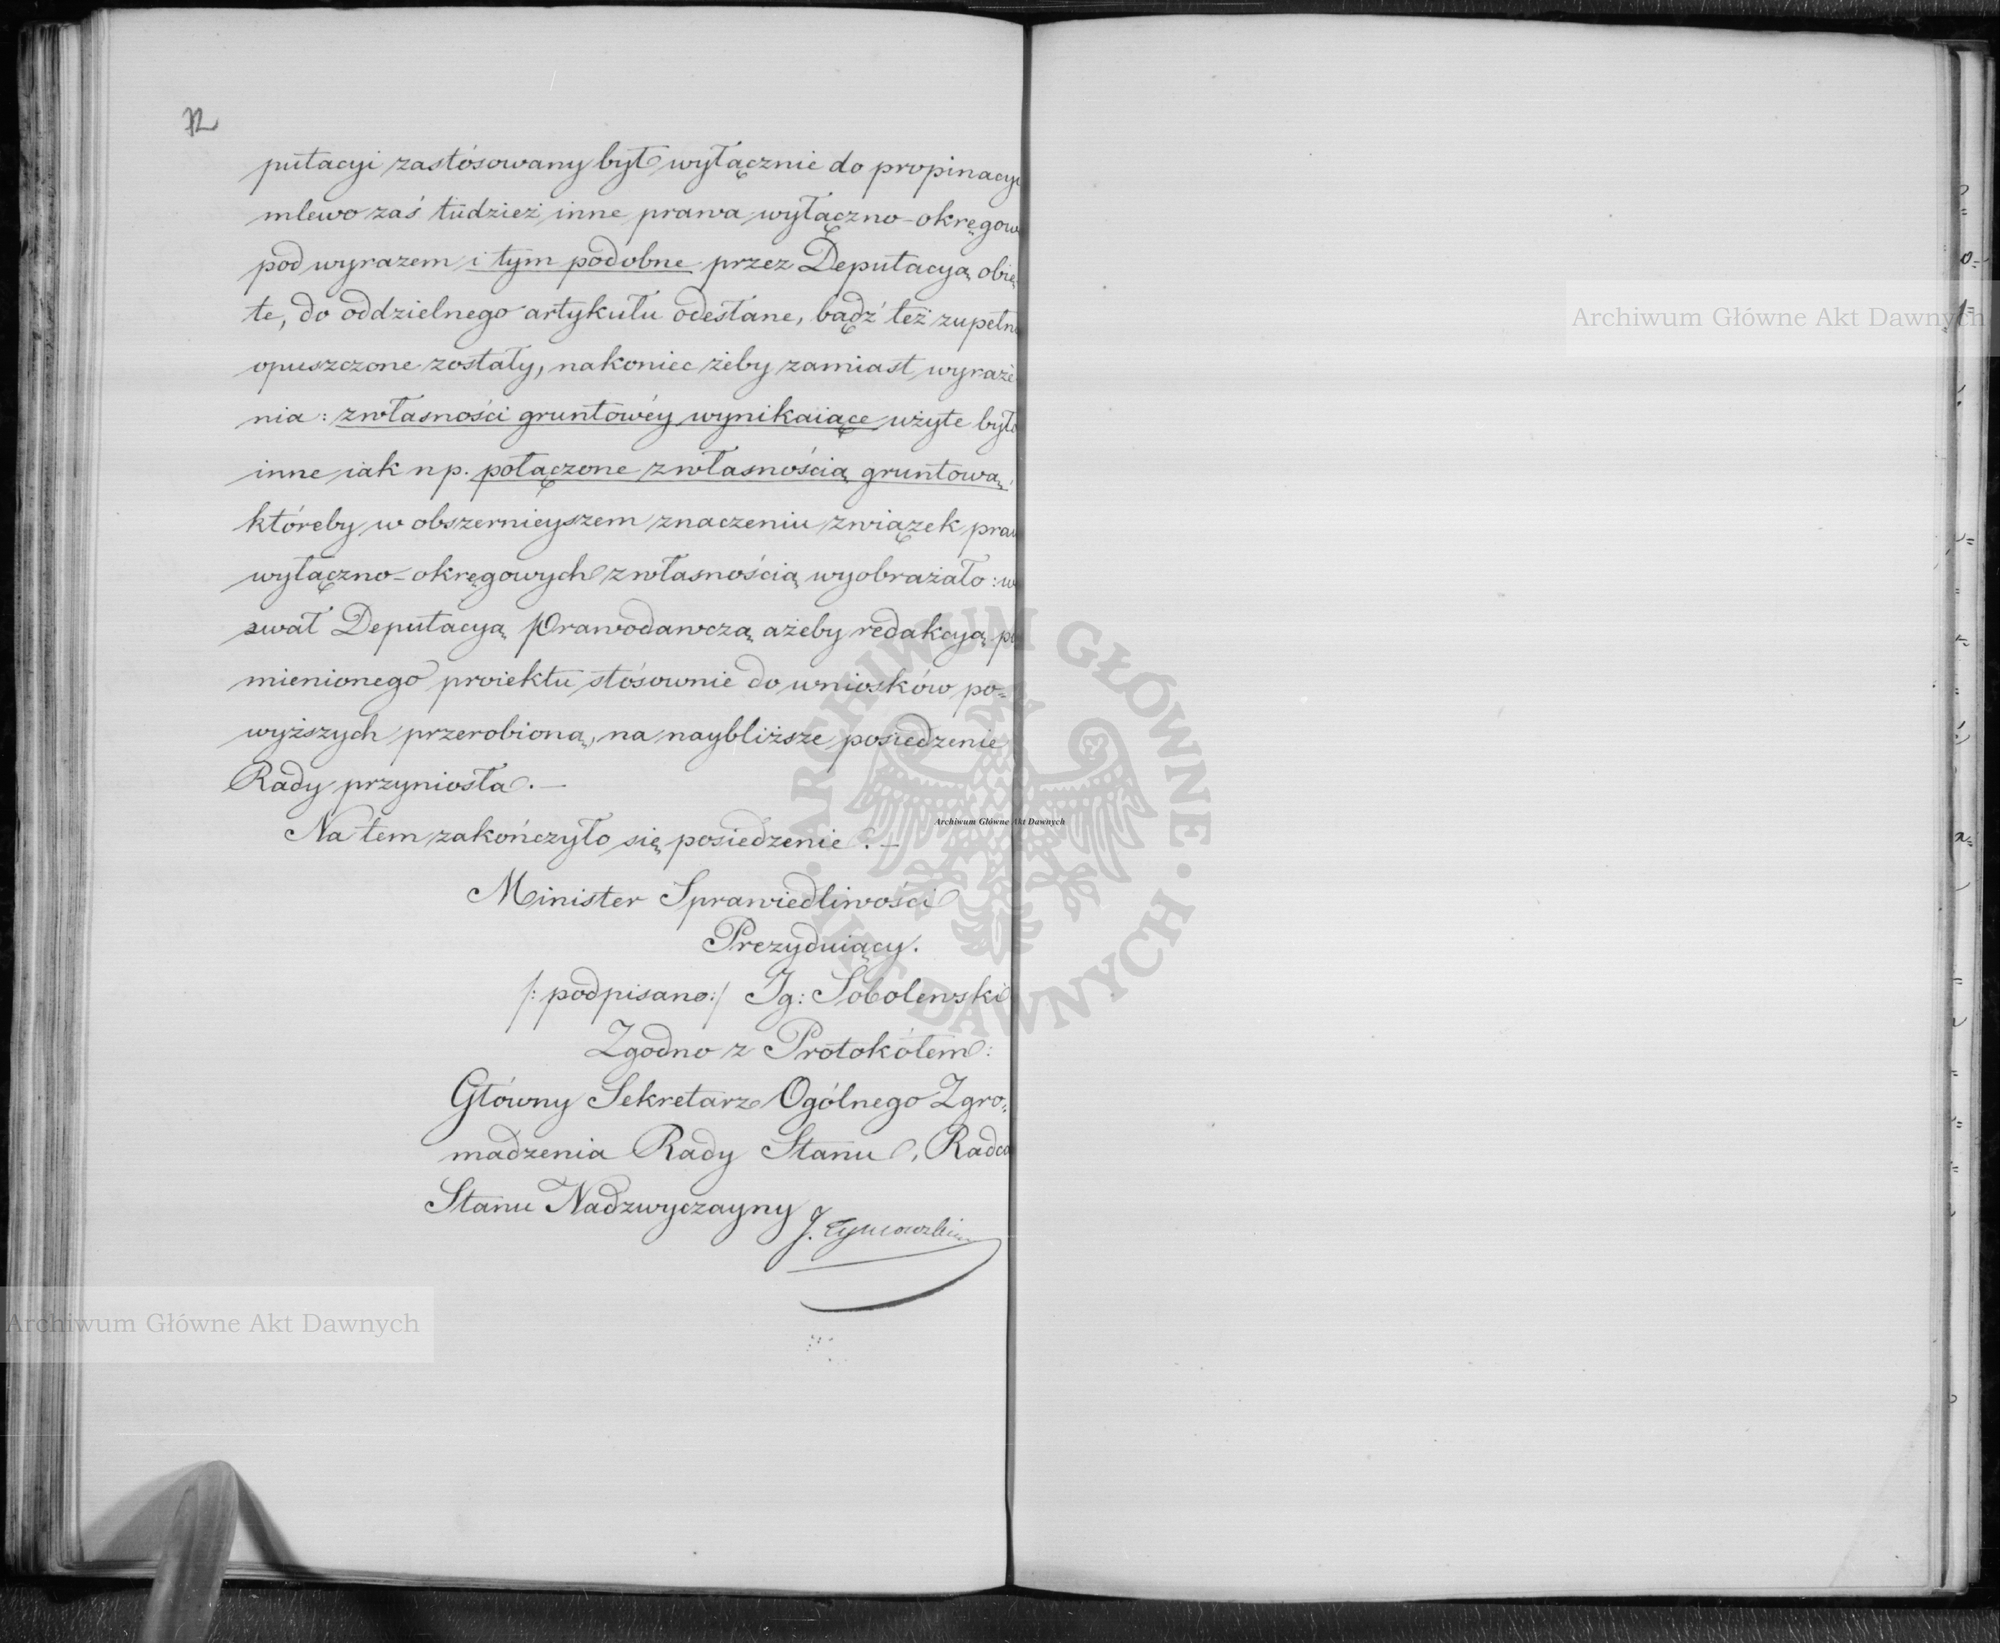 72
putacyi zastósowany był wyłącznie do propinacyi
mlewo zaś tudzież inne prawa wyłączno-okręgow
pod wyrazem i tym podobne przez Deputacyą obię
te, do oddzielnego artykułu odesłane, bądź też zupełn
opuszczone zostały, nakoniec żeby zamiast wyraże
nia: z własności gruntowéy wynikaiące użyte było
inne iak np. połączone z własnością gruntową,
któreby w obszernieyszem znaczeniu związek praw
wyłączno-okręgowych z własnością wyobrażało: w
zwał Deputacyą Prawodawczą ażeby redakcyą po
mienionego proiektu stósownie do wniosków po=
wyższych przerobioną, na naybliższe posiedzenie
Rady przyniosła. —
Na tem zakończyło się posiedzenie. —
Minister Sprawiedliwości
Prezyduiący.
/: podpisano :/ Ig: Sobolewski
Zgodno z Protokółem:
Główny Sekretarz Ogólnego Zgro=
madzenia Rady Stanu, Radca
Stanu Nadzwyczayny J. Tymowski
Archiwum Główne Akt Dawnych
Archiwum Główne Akt Dawnych
Archiwum Główne Akt Dawnych
ARCHIWUM GŁÓWNE AKT DAWNYCH